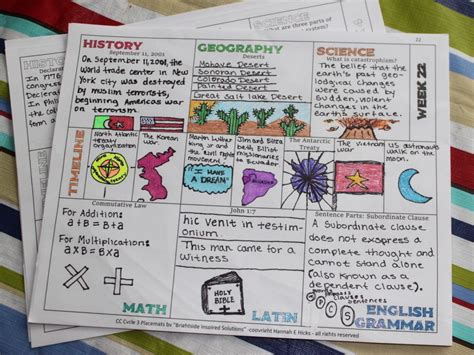 HISTORY
September 11, 2001
On September 11, 2001, the
world trade center in New
York city was destroyed
by muslim terrorists,
beginning Americas war
on terrorism.
GEOGRAPHY
Deserts
Mohave Desert
Sonoran Desert
Colorado Desert
Painted Desert
Great Salt lake Desert
SCIENCE
What is catastrophism?
The belief that the
earth's past ge-
ological changes
were caused by
sudden, violent
changes in the
earth's surface.
22
WEEK 22
TIMELINE
North Atlantic
treaty
Organization
The Korean
war
Martin Luther
king, Jr and
the civil rights
movement
I HAVE
A DREAM
Jim and Elisa
beth Elliot
missionaries to
Ecuador
The Antarctic
Treaty
The vietnam
war
US astronauts
walk on the
moon.
Commutative Law
For Addition:
a+b = B+a
For Multiplications:
axB = Bxa
MATH
John 1:7
hic venit in testim-
onium.
This man came for a
witness
HOLY
BIBLE
LATIN
Sentence Parts: Subordinate Clause
A Subordinate clause
does not exspress a
complete thought and
cannot stand alone
(also known as a
dependent clause).
clauses
sentences
ENGLISH
GRAMMAR
CC Cycle 3 Placemats by "Brightside Inspired Solutions" -copyright Hannah E Hicks - all rights reserved
SCIENCE
are three parts of
HISTORY
In 1776
Congress